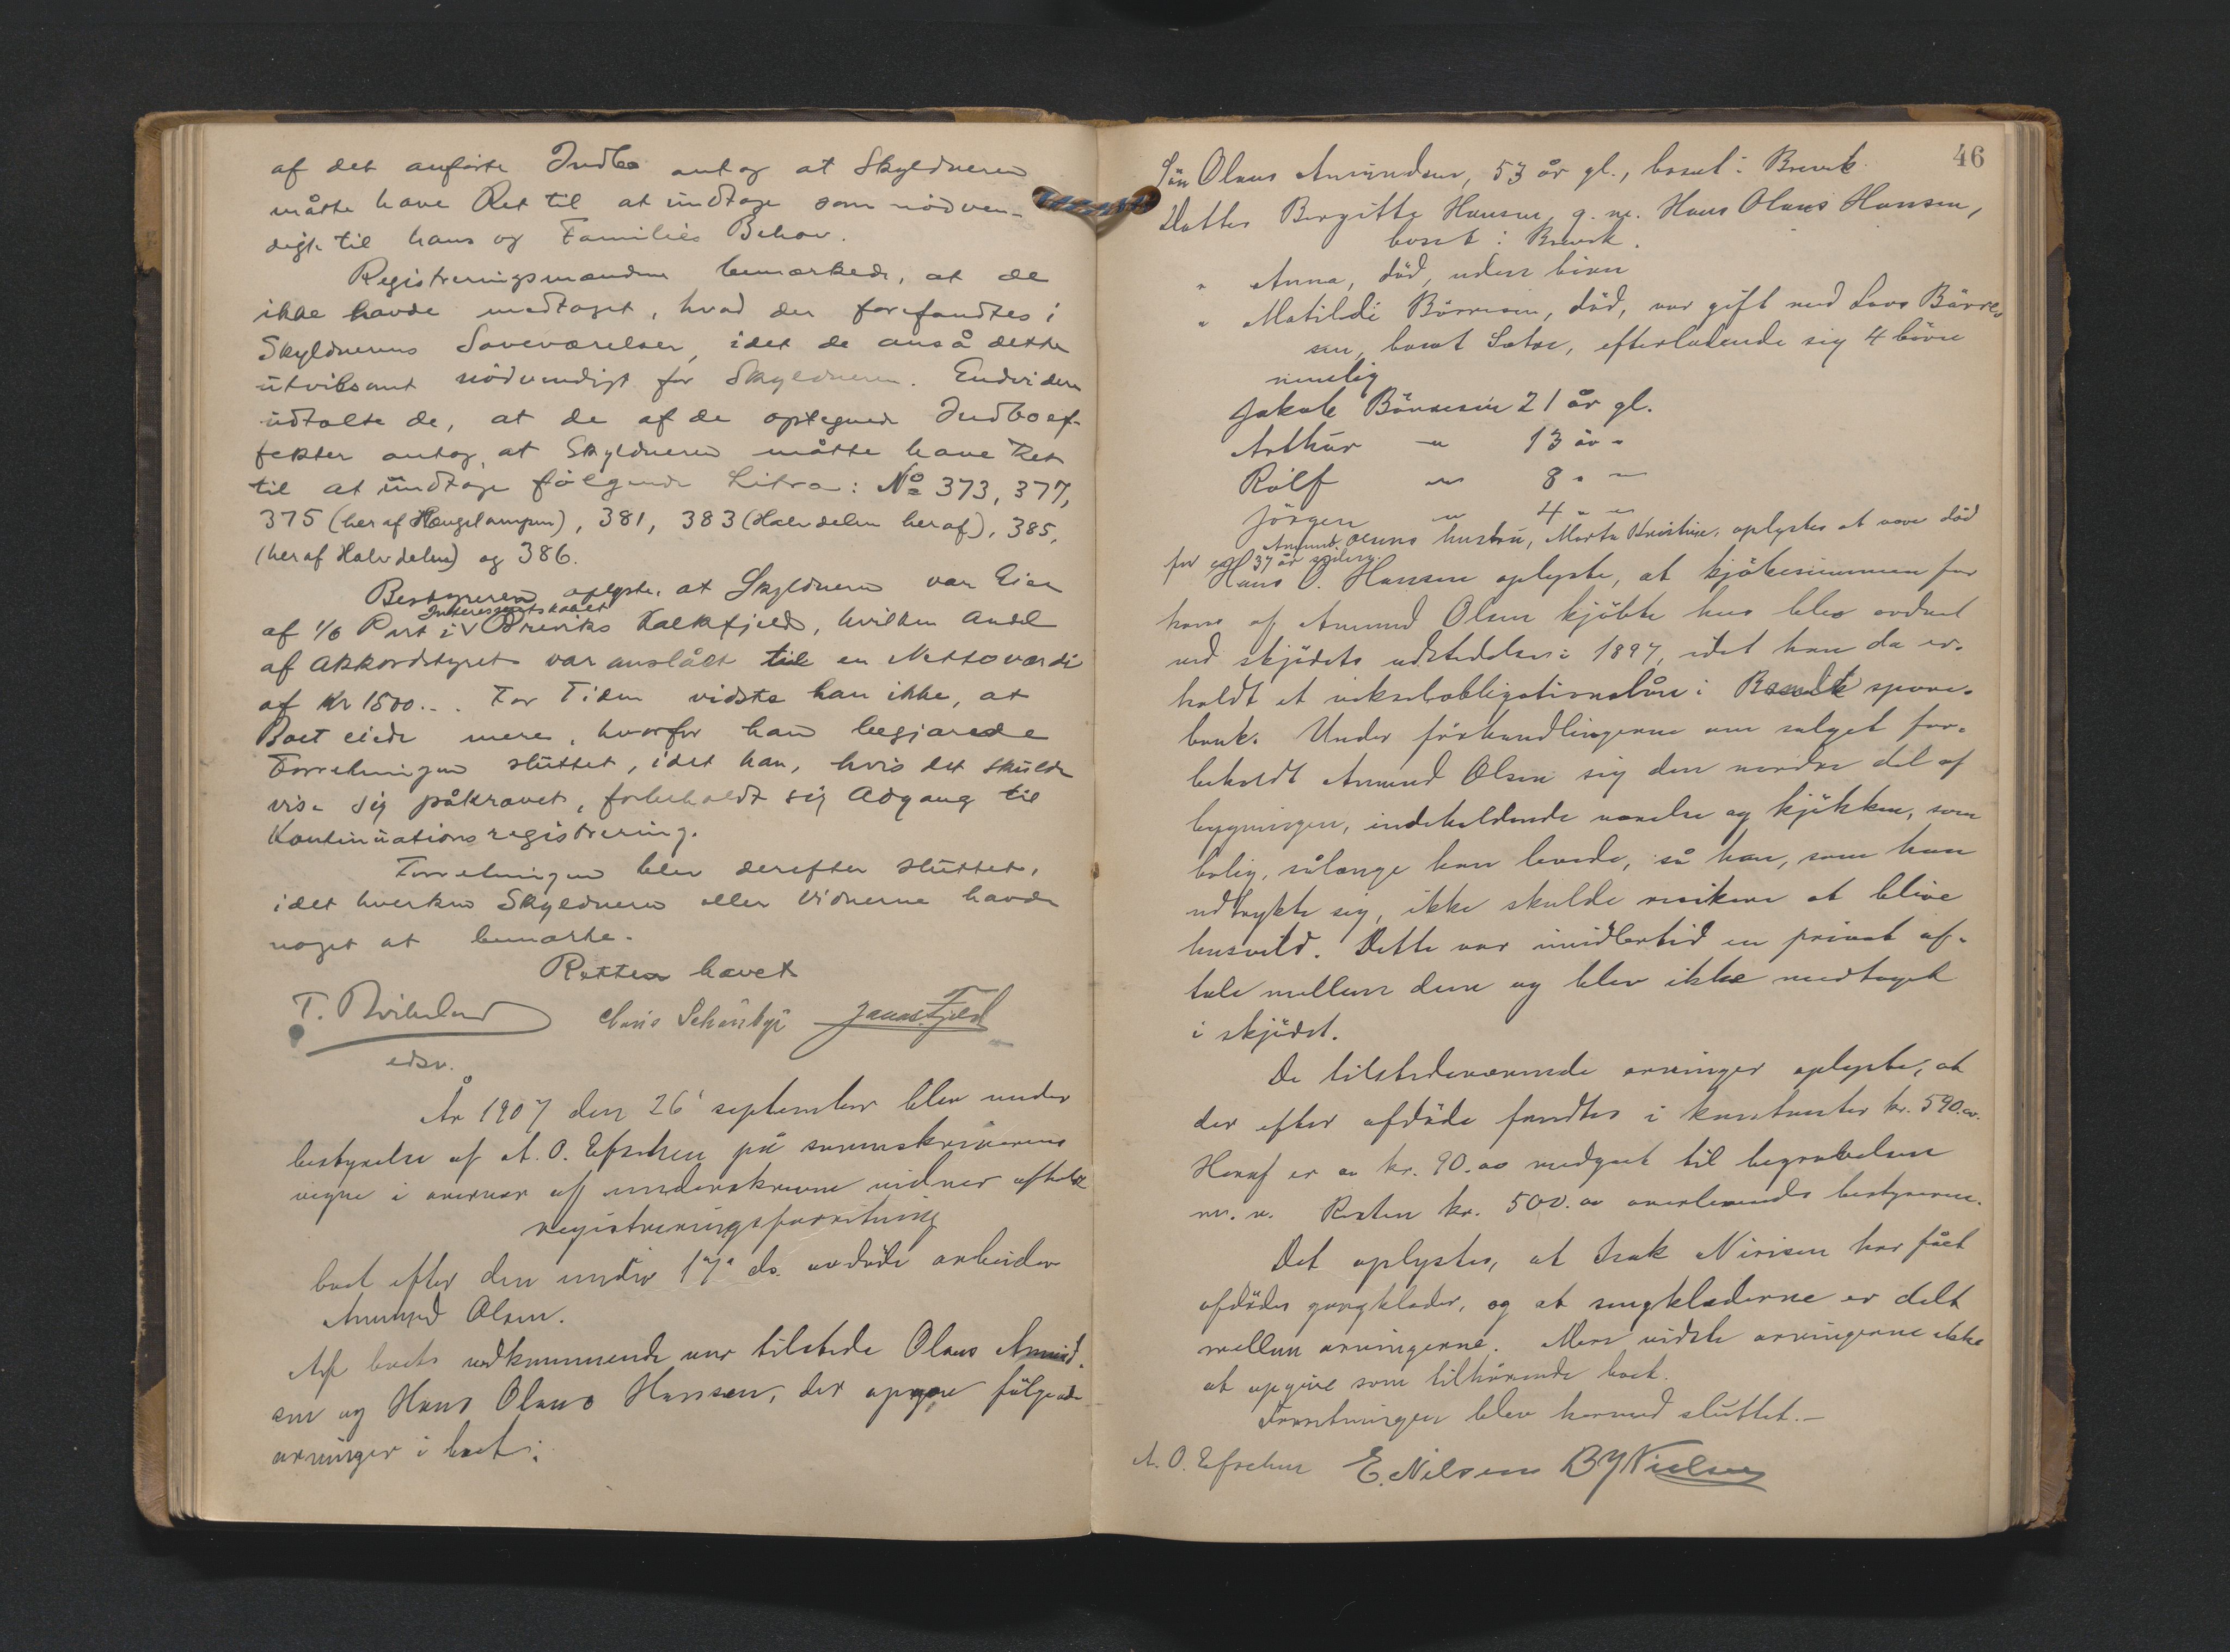 af det anførte Indbo antog at Skyldneren
måtte have Ret til at undtage som nödven-
digt til hans og Families Behov.
Registreringsmændene bemærkede, at de
ikke havde medtaget, hvad der forefandtes i
Skyldnerens Soveværelser, idet de anså dette
utvilsomt nödvendigt for Skyldneren. Endvidere
udtalte de, at de af de optegnede Indboef-
fekter antog, at Skyldneren måtte have Ret
til at undtage fölgende Litra: No 373, 377,
375 (heraf Hængelampen), 381, 383 (Halvdelen heraf), 385,
(heraf Halvdelen) og 386.
Bestyreren oplyste, at Skyldneren var Eier
Interessentskabet
af 1/6 Part i V Breviks Kalkfjeld, hvilken Andel
af Akkordstyret var anslået til en Nettoværdi
af Kr 1500.-. For Tiden vidste han ikke, at
Boet eiede mere, hvorfor han begjærede
Forretningen sluttet, idet han, hvis det skulde
vise sig påkrævet, forbeholdt sig Adgang til
Kontinuationsregistrering.
Forretningen blev derefter sluttet,
idet hverken Skyldneren eller Vidnerne havde
noget at bemærke.
Retten hævet
T. Chris Schönbye Jonas Fjeld
edsv.
År 1907 den 26' september blev under
bestyrelse af A. O. Efschen på sorenskriverens
vegne i overvær af underskrevne vidner afholdt
registreringsforretning
boet efter den under 17' ds. avdöde arbeider
Amund Olsen.
Af boets vedkommende var tilstede Olaus Amund-
sen og Hans Olaus Hansen, der opgav fölgende
arvinger i boet:
46
Sön Olaus Amundsen, 53 år gl., bosat i Brevik.
Datter Birgitte Hansen, g. m. Hans Olaus Hansen,
bosat i Brevik.
" Anna, död, uden börn
" Matilde Börresen, död, var gift med Lars Börre-
sen, bosat, efterladende sig 4 börn
nemlig
Jakob Börresen 21 år gl.
Arthur " 13 år "
Rolf " 8 " "
Jörgen " 4 " "
Amund Olsens hustru, Marte Kristine, oplystes at være död
for 37 år siden.
Hans O. Hansen oplyste, at kjöbesummen for
hans af Amund Olsen kjöbte hus blev ordnet
ved skjödets udstedelse i 1897, idet han da er-
holdt et vekselobligationslån i spare-
bank. Under forhandlingerne om salget for-
beholdt Amund Olsen sig den nordre del af
bygningen, indeholdende værelse og kjökken, som
bolig, sålænge han levede, så han, som han
udtrykte sig, ikke skulde risikere at blive
husvild. Dette var imidlertid en privat af-
tale mellem dem og blev ikke medtaget
i skjödet.
De tilstedeværende arvinger oplyste, at
der efter afdöde fandtes i kontanter kr. 590.00.
Heraf er ca kr. 90.00 medgaat til begravelsen
m. v. Resten kr. 500.00 overleveredes bestyreren.
Det oplystes, at Isak Nirisen har fået
afdödes gangklæder, og at sengklæderne er delt
mellem arvingerne. Mere vidste arvingerne ikke
at opgive som tilhörende boet.
Forretningen blev hermed sluttet.-
A. O. Efschen E. Nilsen B Y Nielsen